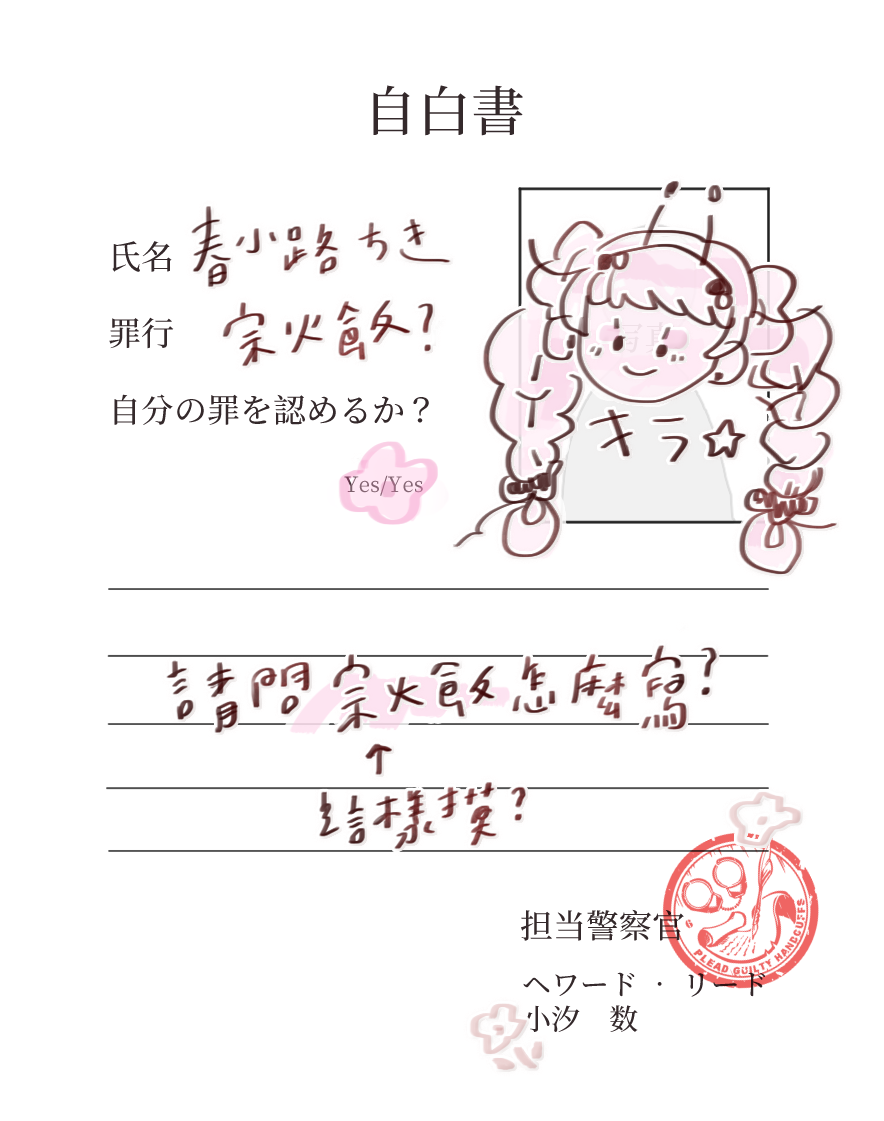 自白書
氏名 春小路ちき
罪行 宗火飯?
自分の罪を認めるか？
Yes/Yes
写真
キラ☆
請問宗火飯怎麼寫?
↑
這樣揍?
担当警察官
ヘワード ・ リード
小汐 数
6 PLEAD GUILTY HANDCUFFS